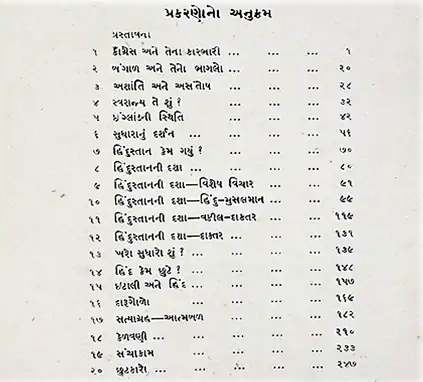 પ્રકરણોનો અનુક્રમ
પ્રસ્તાવના
૧ કૉંગ્રેસ અને તેના કારભારી ... ... ... ૧
૨ બંગાળ અને તેના ભાગલા ... ... ... ૨૦
૩ અશાંતિ અને અસંતોષ ... ... ... ૨૮
૪ સ્વરાજ્ય તે શું? ... ... ... ૩૨
૫ ઇંગ્લાંડની સ્થિતિ ... ... ... ૪૨
૬ સુધારાનું દર્શન ... ... ... ... ૫૬
૭ હિંદુસ્તાન કેમ ગયું? ... ... ... ૭૦
૮ હિંદુસ્તાનની દશા ... ... ... ... ૮૦
૯ હિંદુસ્તાનની દશા—વિશેષ વિચાર ... ... ૯૧
૧૦ હિંદુસ્તાનની દશા—હિંદુ-મુસલમાન ... ... ૯૯
૧૧ હિંદુસ્તાનની દશા—વકીલ-દાકતર ... ... ૧૧૯
૧૨ હિંદુસ્તાનની દશા—દાક્તર ... ... ... ૧૩૧
૧૩ ખરો સુધારો શું? ... ... ... ... ૧૩૯
૧૪ હિંદ કેમ છુટે? ... ... ... ... ૧૪૮
૧૫ ઇટાલી અને હિંદ ... ... ... ... ૧૫૭
૧૬ દારૂગોળો ... ... ... ... ૧૬૯
૧૭ સત્યાગ્રહ—આત્મબળ ... ... ... ૧૮૨
૧૮ કેળવણી ... ... ... ... ... ૨૧૦
૧૯ સંચાકામ ... ... ... ... ૨૩૩
૨૦ છુટકારો ... ... ... ... ૨૪૭